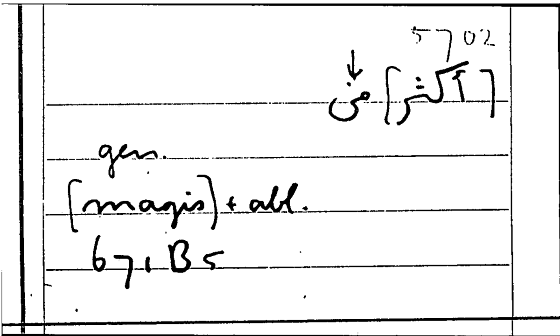 5702
[أكثر] من
gen.
[magis] + abl.
671 B5